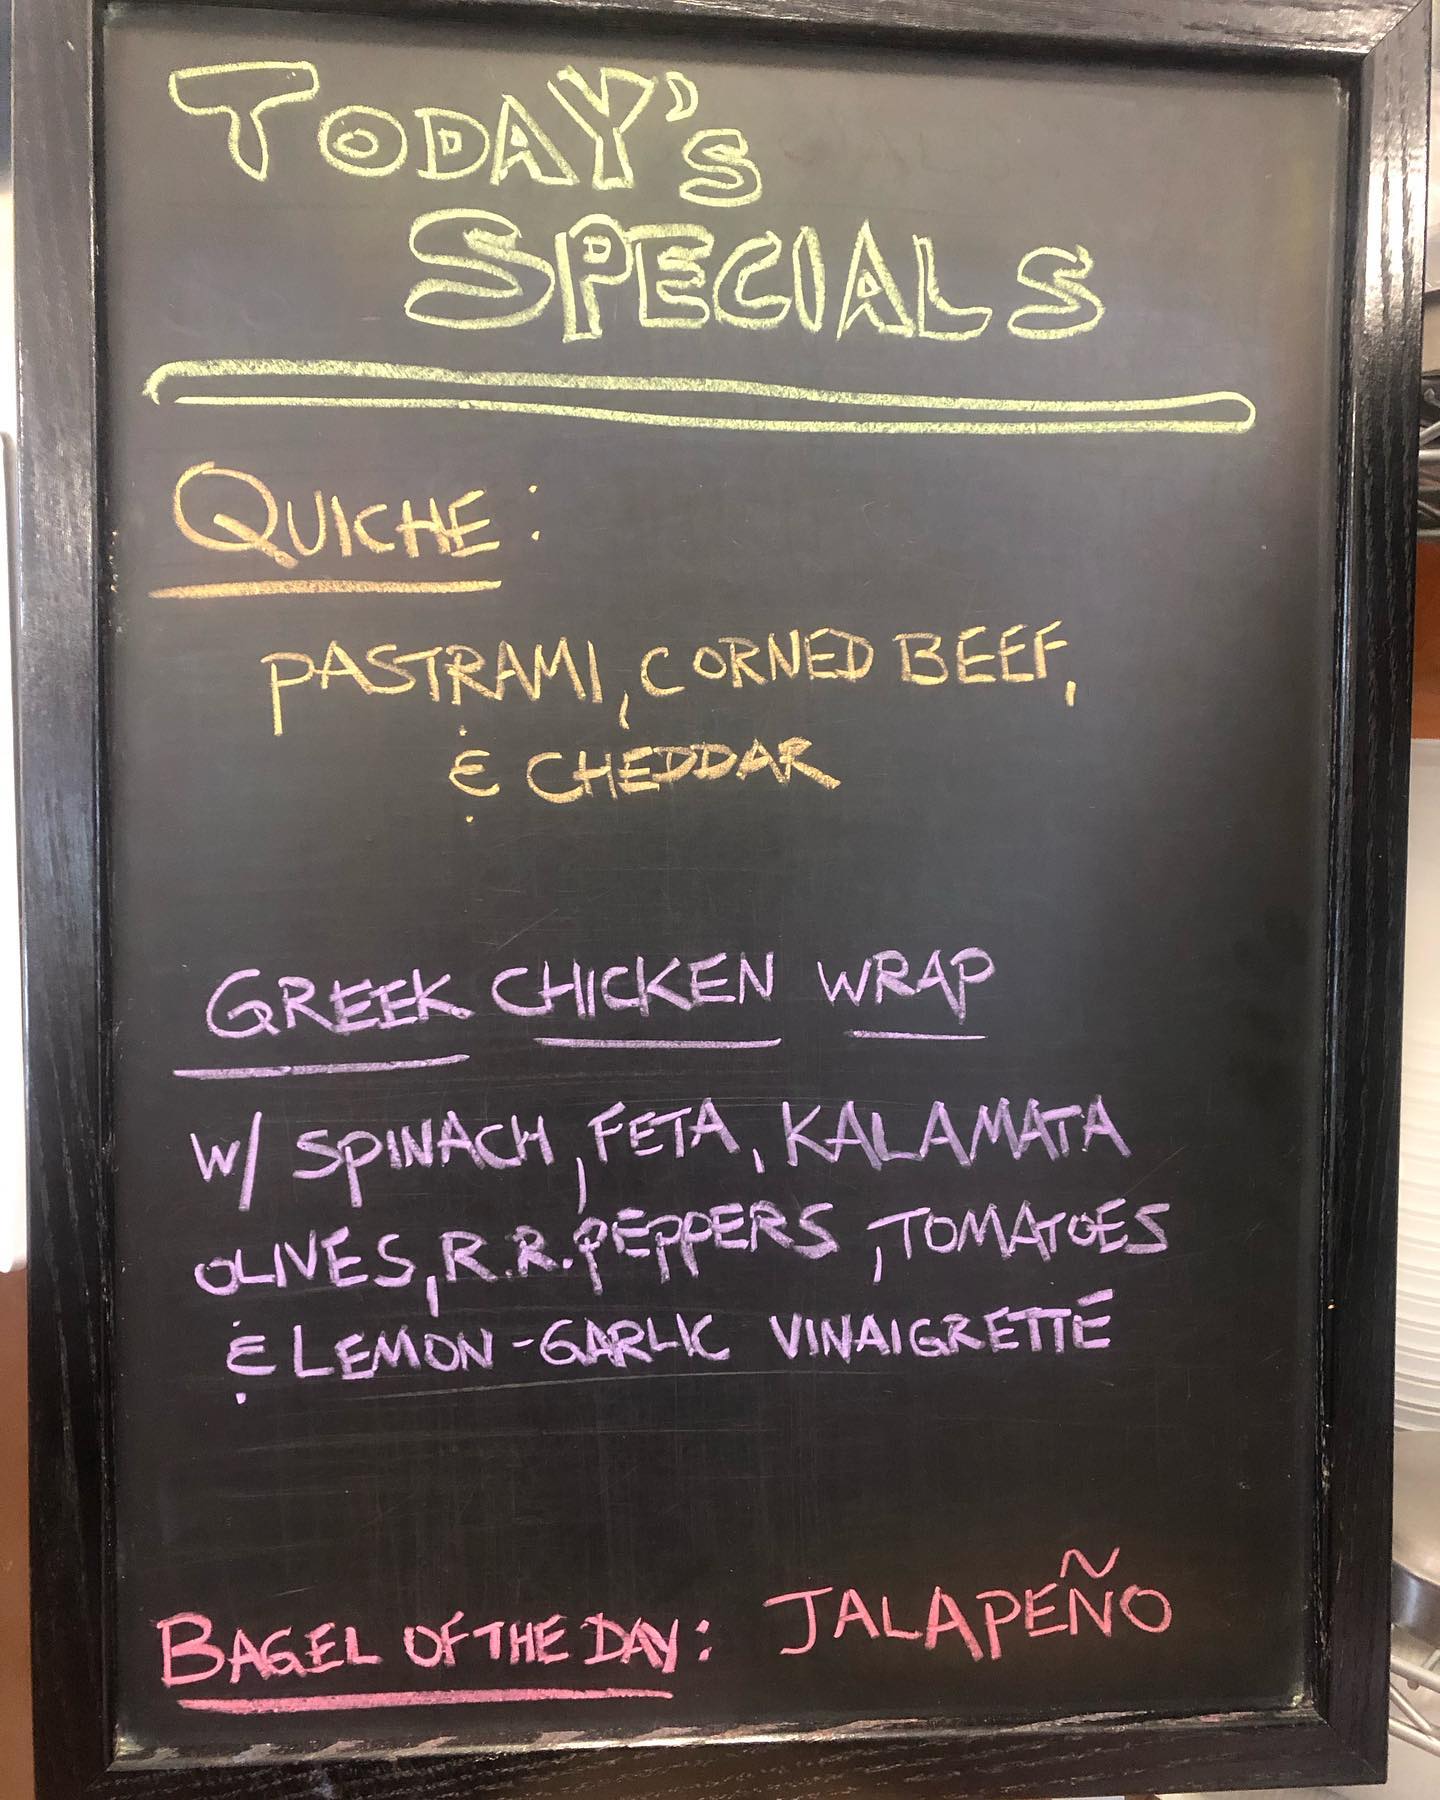 TODAY'S
SPECIALS
QUICHE:
PASTRAMI, CORNED BEEF,
& CHEDDAR
GREEK CHICKEN WRAP
W/ SPINACH, FETA, KALAMATA
OLIVES, R.R. PEPPERS, TOMATOES
& LEMON-GARLIC VINAIGRETTE
BAGEL OF THE DAY: JALAPEÑO